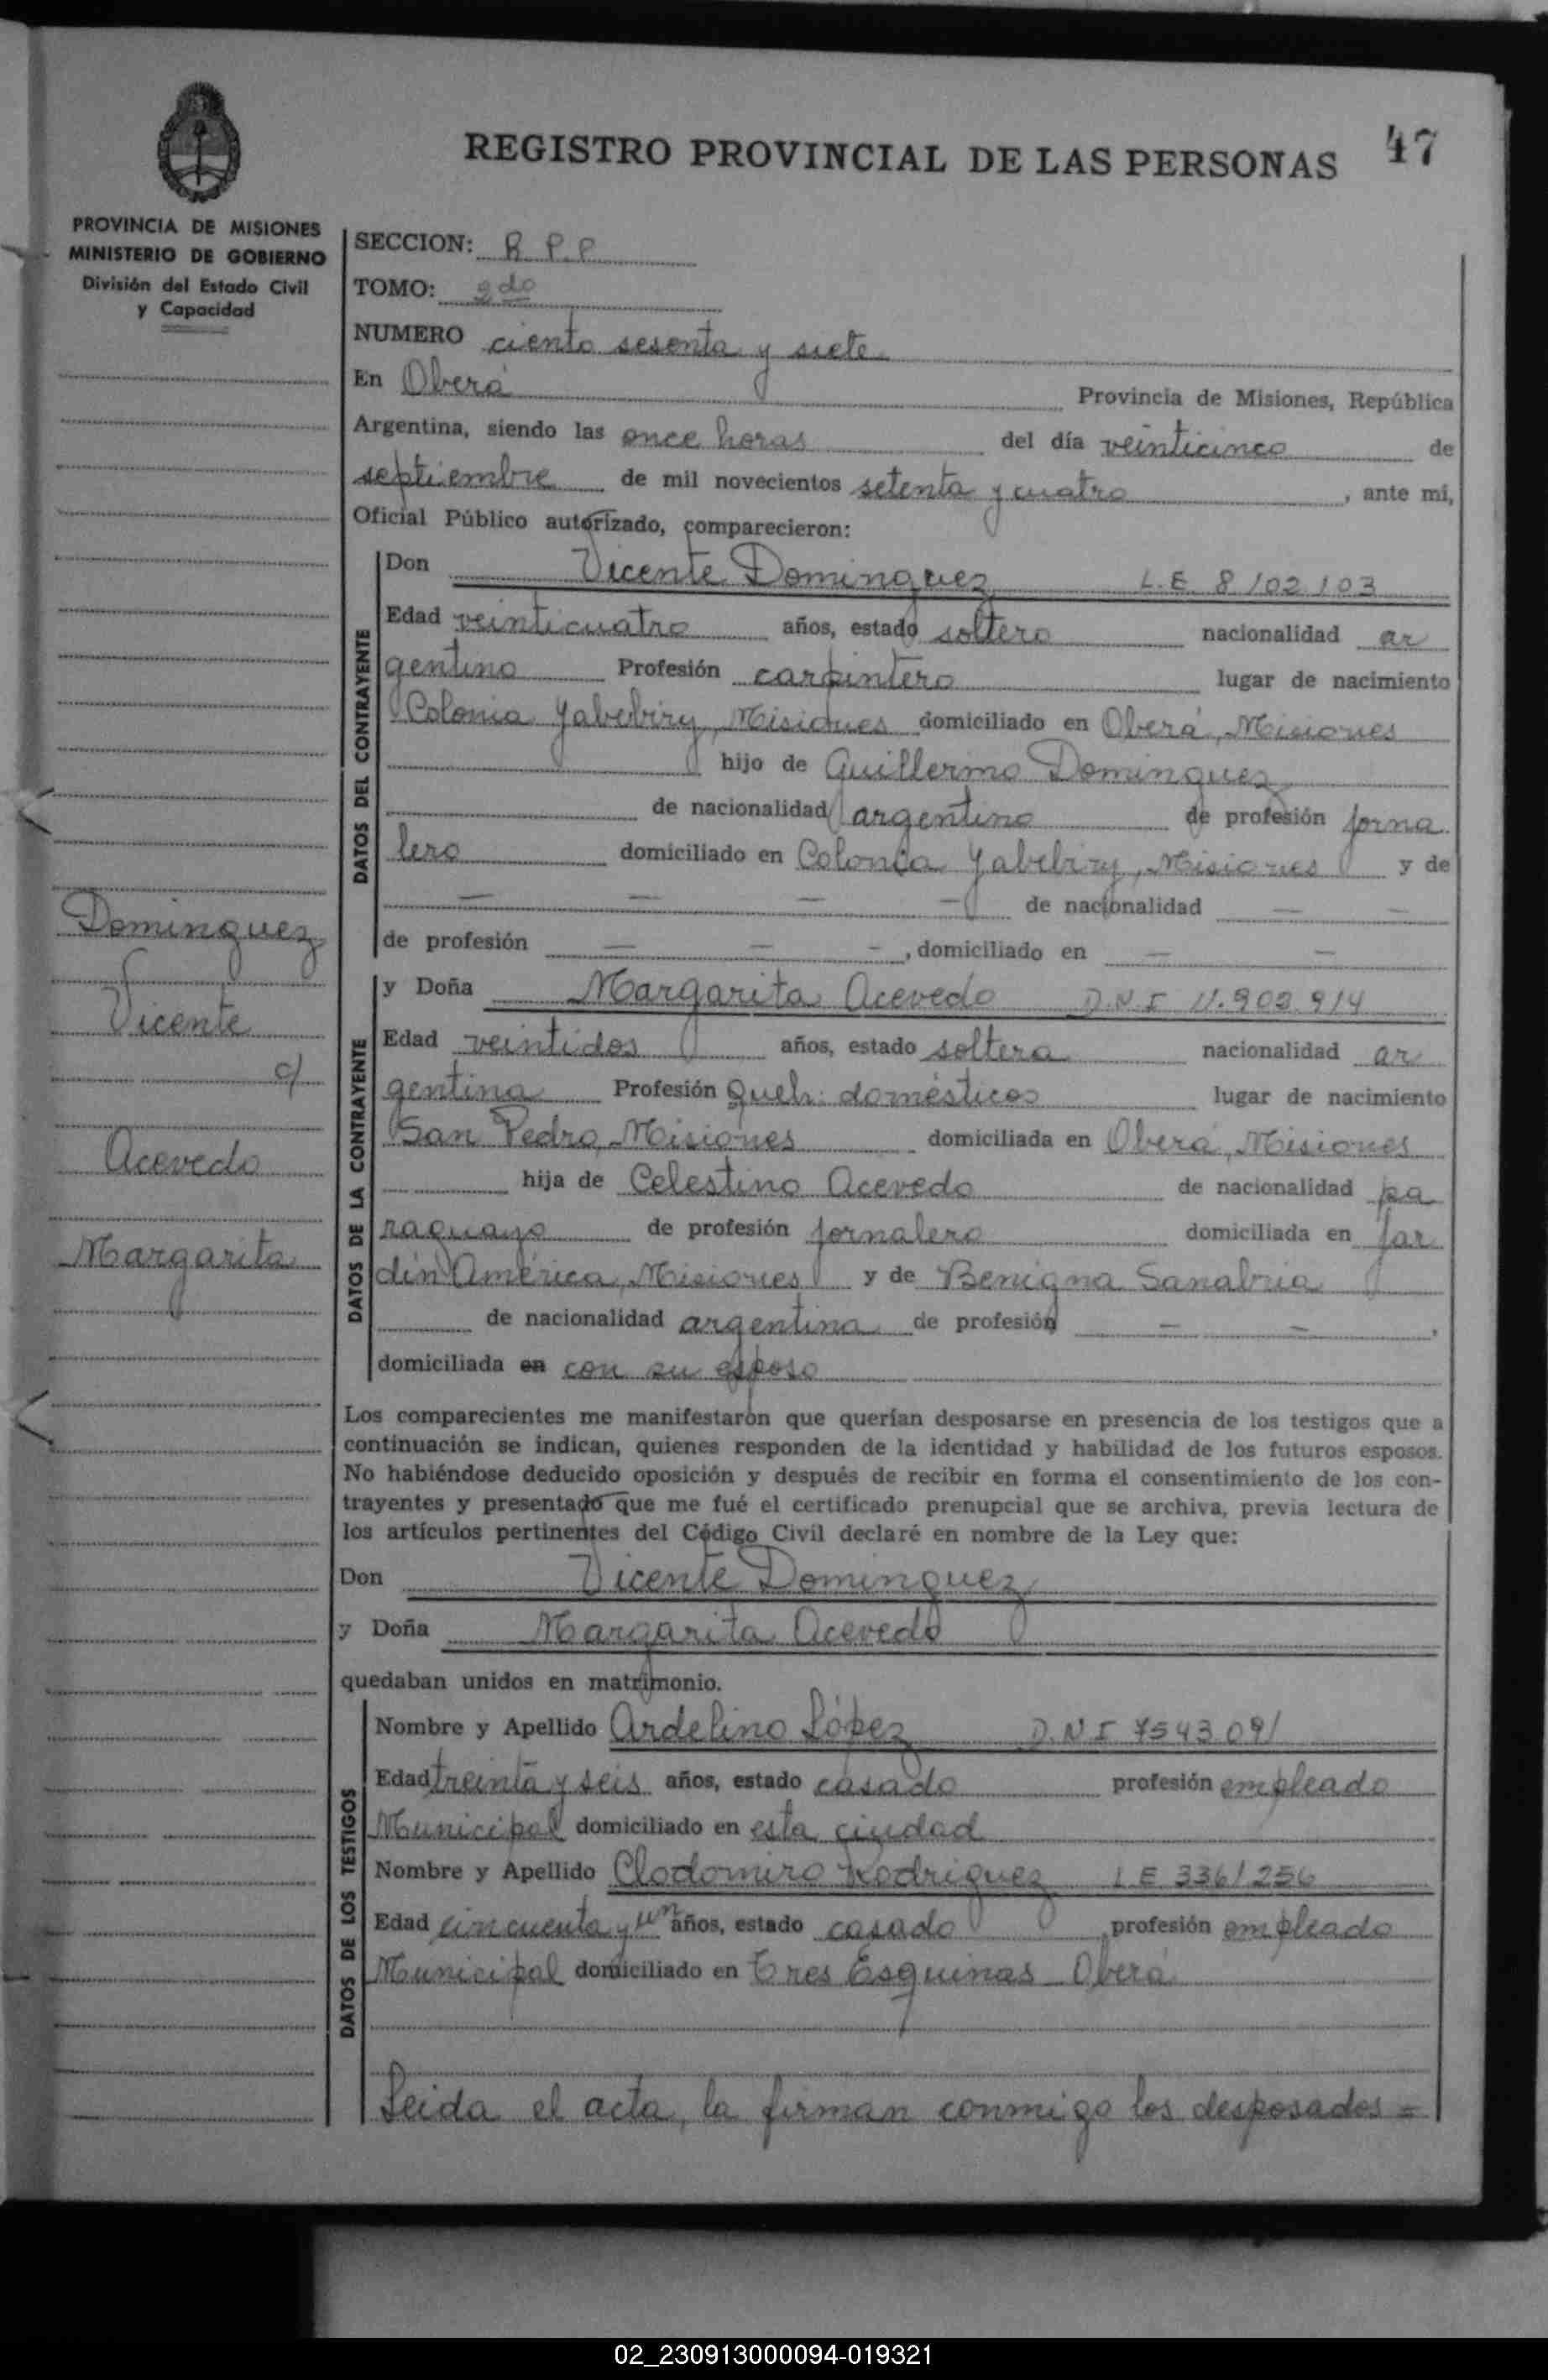 47
REGISTRO PROVINCIAL DE LAS PERSONAS
PROVINCIA DE MISIONES
MINISTERIO DE GOBIERNO
División del Estado Civil
y Capacidad
Dominguez
Vicente
c/
Acevedo
Margarita
SECCION: R P.P
TOMO: 2do
NUMERO ciento sesenta y siete
En Oberá Provincia de Misiones, República
Argentina, siendo las once horas del día veinticinco de
septiembre de mil novecientos setenta y cuatro, ante mí,
Oficial Público autorizado, comparecieron:
DATOS DEL CONTRAYENTE
Don Vicente Dominguez L.E. 8102103
Edad veinticuatro años, estado soltero nacionalidad ar
gentino Profesión carpintero lugar de nacimiento
Colonia Yabebiry, Misiones domiciliado en Oberá, Misiones
hijo de Guillermo Dominguez
de nacionalidad argentino de profesión jorna
lero domiciliado en Colonia Yabebiry, Misiones y de
— — — — de nacionalidad — —
de profesión — — —, domiciliado en — —
DATOS DE LA CONTRAYENTE
y Doña Margarita Acevedo D.N.I 11.902.914
Edad veintidos años, estado soltera nacionalidad ar
gentina Profesión Queh. domésticos lugar de nacimiento
San Pedro, Misiones domiciliada en Oberá, Misiones
hija de Celestino Acevedo de nacionalidad pa
raguayo de profesión jornalero domiciliada en Jar
dín América, Misiones y de Benigna Sanabria
de nacionalidad argentina de profesión — —,
domiciliada en con su esposo
Los comparecientes me manifestaron que querían desposarse en presencia de los testigos que a
continuación se indican, quienes responden de la identidad y habilidad de los futuros esposos.
No habiéndose deducido oposición y después de recibir en forma el consentimiento de los con-
trayentes y presentado que me fué el certificado prenupcial que se archiva, previa lectura de
los artículos pertinentes del Código Civil declaré en nombre de la Ley que:
Don Vicente Dominguez
y Doña Margarita Acevedo
quedaban unidos en matrimonio.
DATOS DE LOS TESTIGOS
Nombre y Apellido Ardelino López D.N.I 7543.091
Edad treinta y seis años, estado casado profesión empleado
Municipal domiciliado en esta ciudad
Nombre y Apellido Clodomiro Rodriguez L.E 3361256
Edad cincuenta y un años, estado casado profesión empleado
Municipal domiciliado en Tres Esquinas Oberá
Leida el acta, la firman conmigo los desposados =
02_230913000094-019321